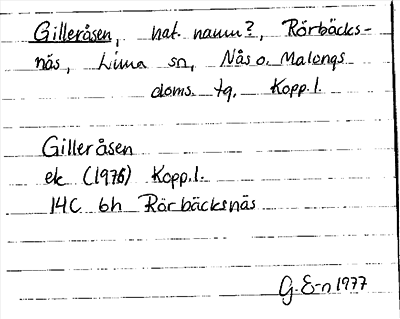 Gilleråsen, nat. namn?, Rörbäcks-
näs, Lima sn, Nås o. Malungs
doms. tg. Kopp.l.
Gilleråsen
ek (1976) Kopp.l.
14C 6h Rörbäcksnäs
G. E-n 1977